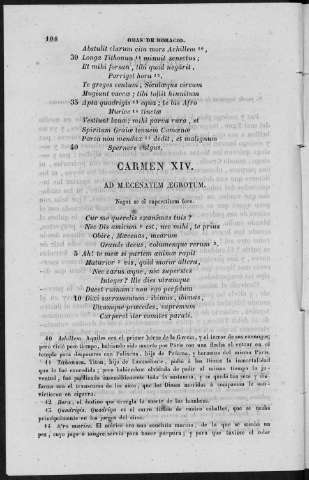 108 ODAS DE HORACIO.
Abstulit clarum cita mors Achillem 40,
30 Longa Tithonum 41 minuit senectus;
Et mihi forsan, tibi quod negârit,
Porriget hora 42.
Te greges centum, Siculæque circum
Mugiunt vaccæ; tibi tollit hinnitum
35 Apta quadrigis 43 equa; te bis Afro
Murice 44 tinctæ
Vestiunt lanæ; mihi parva rura, et
Spiritum Graiæ tenuem Camœnæ
Parca non mendax dedit, et malignum
40 Spernere vulgus.
CARMEN XIV.
AD MÆCENATEM ÆGROTUM.
Negat se ei superstitem fore.
Cur me querelis exanimas tuis?
Nec Dis amicum est, nec mihi, te prius
Obire, Mæcenas, mearum
Grande decus, columenque rerum
5 Ah! te meæ si partem animæ rapit
Maturior vis, quid moror altera,
Nec carus æque, nec superstes
Integer? Ille dies utramque
Ducet ruinam: non ego perfidum
10 Dixi sacramentum: ibimus, ibimus,
Utcumque præcedes, supremum
Carpere iter comites parati.
40 Achillem. Aquiles era el primer héroe de la Grecia, y el terror de sus enemigos;
pero vivió poco tiempo, habiendo sido muerto por Paris con una flecha al entrar en el
templo para desposarse con Polixena, hija de Príamo, y hermana del mismo Paris.
41 Tithonum. Titon, hijo de Laomedonte, pidió á los Dioses la inmortalidad
que le fue concedida; pero habiéndose olvidado de pedir al mismo tiempo la ju-
ventud,
42 Hora: el destino que arregla la suerte de los hombres.
43 Quadrigis. Quadriga es el carro tirado de cuatro caballos, que se usaba
principalmente en los juegos del circo.
44 Afro murice. El múrice era una conchita marina, de la que se sacaba un